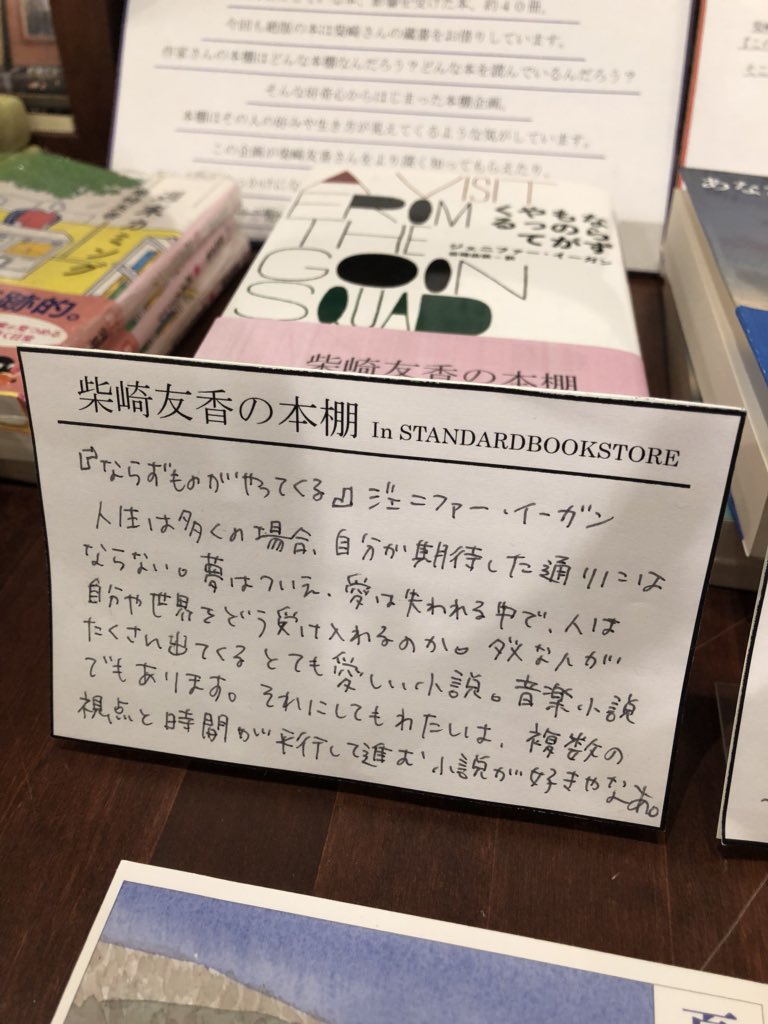 影響を受けた本、約40冊。
今回も絶版の本は柴崎さんの蔵書をお借りしています。
作家さんの本棚はどんな本棚なんだろう?どんな本を読んでいるんだろう?
そんな好奇心からはじまった本棚企画。
本棚はその人の好みや生き方が見えてくるような気がしています。
この企画が柴崎友香さんをより深く知ってもらえたり、
A VISIT
FROM
THE
GOON
SQUAD
ならず
ものが
やって
くる
ジェニファー・イーガン
柴崎友香の本棚
跡的。
あな
柴崎友香の本棚 In STANDARDBOOKSTORE
『ならずものがやってくる』ジェニファー・イーガン
人生は多くの場合、自分が期待した通りには
ならない。夢はついえ、愛は失われる中で、人は
自分や世界をどう受け入れるのか。ダメな人が
たくさん出てくるとても愛しい小説。音楽小説
でもあります。それにしてもわたしは、複数の
視点と時間が移行して進む小説が好きやなあ。